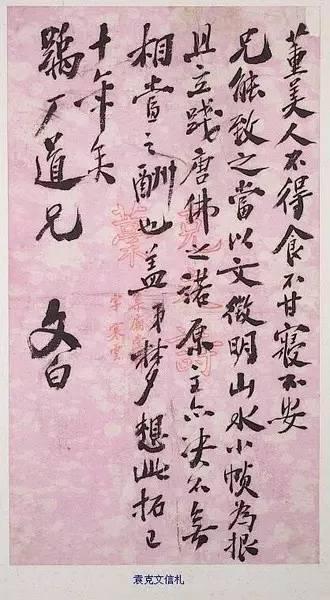 董美人不得食不甘寝不安
兄能致之當以文徵明山水小幀為报
且立践唐佛之诺原主亦决不無
相當之酬也盖弟梦想此拓已
十年矣
鶴厂道兄
文白
袁克文信札